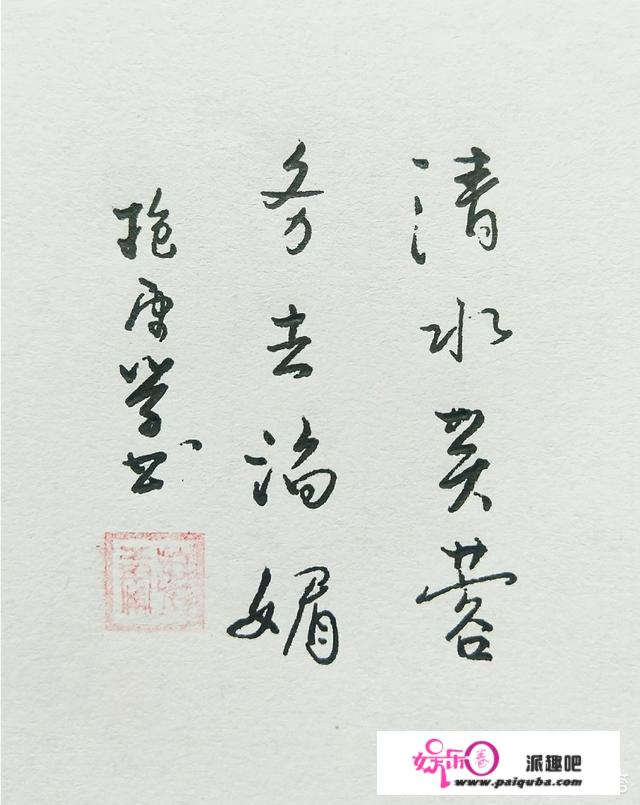 清水芙蓉
务去谄媚
抱康学书
娱乐圈 派趣吧
www.paiquba.com